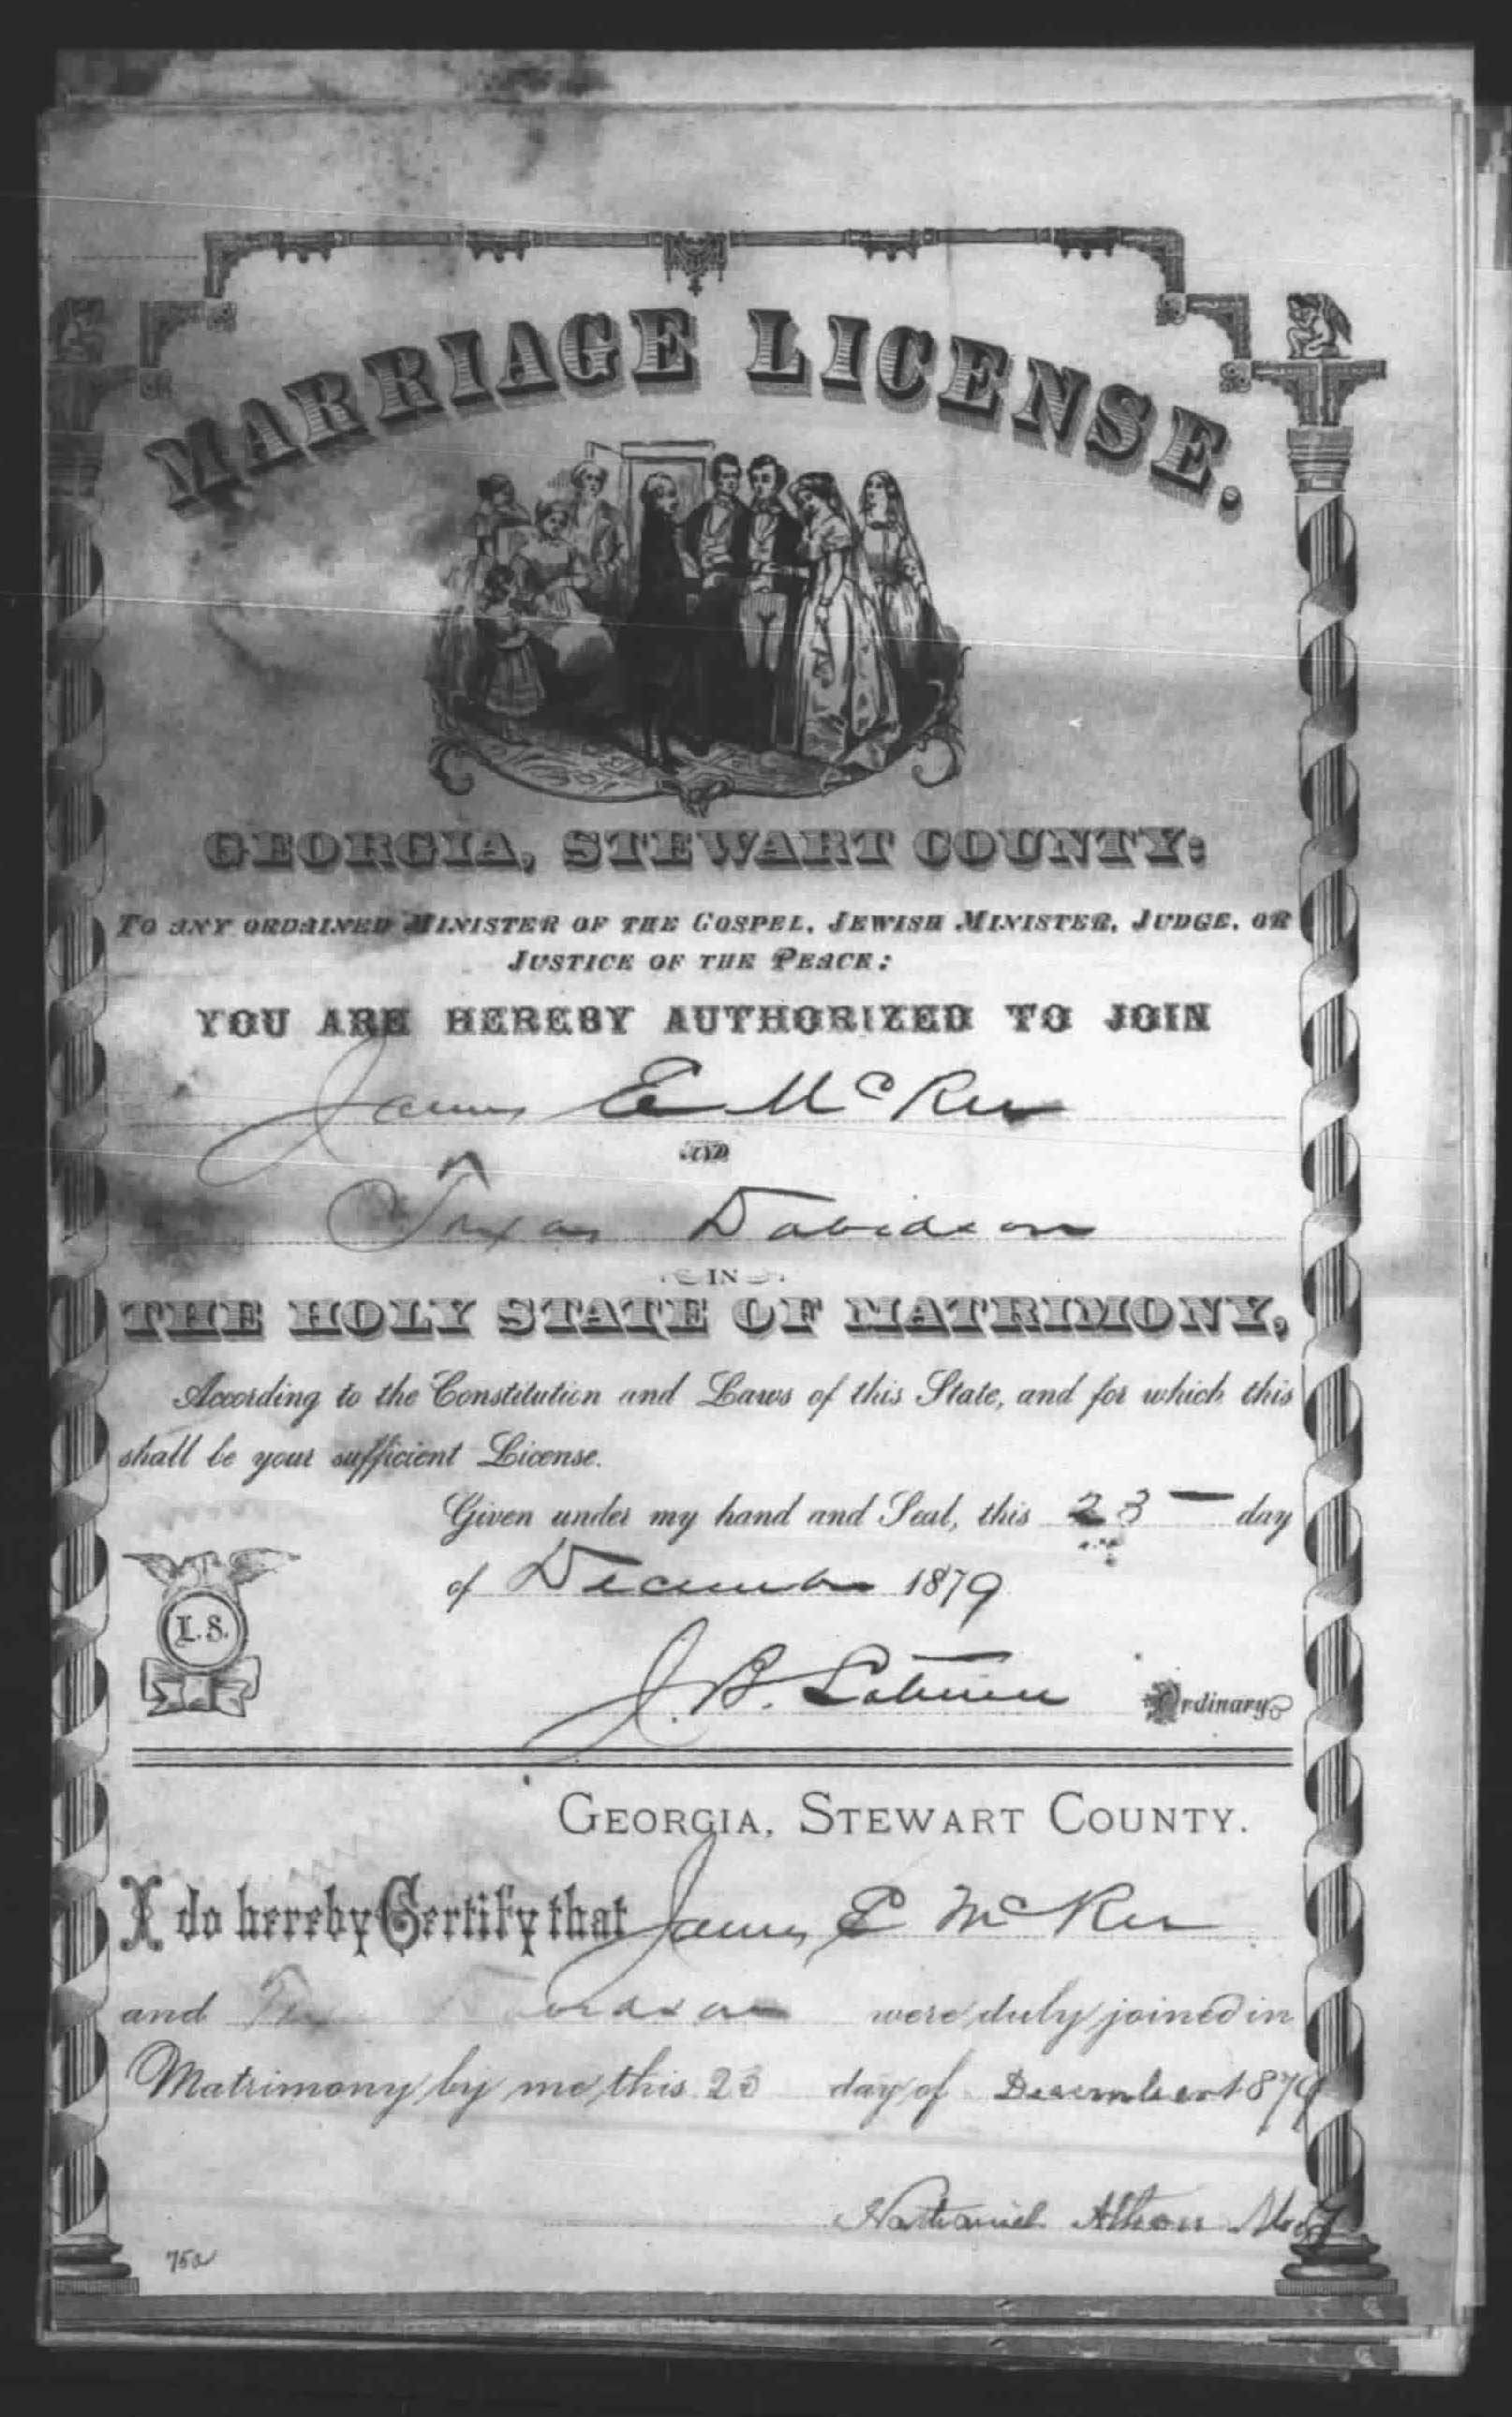 MARRIAGE LICENSE.
GEORGIA, STEWART COUNTY:
TO ANY ORDAINED MINISTER OF THE GOSPEL, JEWISH MINISTER, JUDGE, OR
JUSTICE OF THE PEACE:
YOU ARE HEREBY AUTHORIZED TO JOIN
James E McRee
AND
Texas Davidson
IN
THE HOLY STATE OF MATRIMONY,
According to the Constitution and Laws of this State, and for which this
shall be your sufficient License.
Given under my hand and Seal, this 23 day
of December 1879
L.S.
J. B. Latimer Ordinary
GEORGIA, STEWART COUNTY.
I do hereby Certify that James E McRee
and were duly joined in
Matrimony by me this 23 day of December 1879
Nathaniel
75a